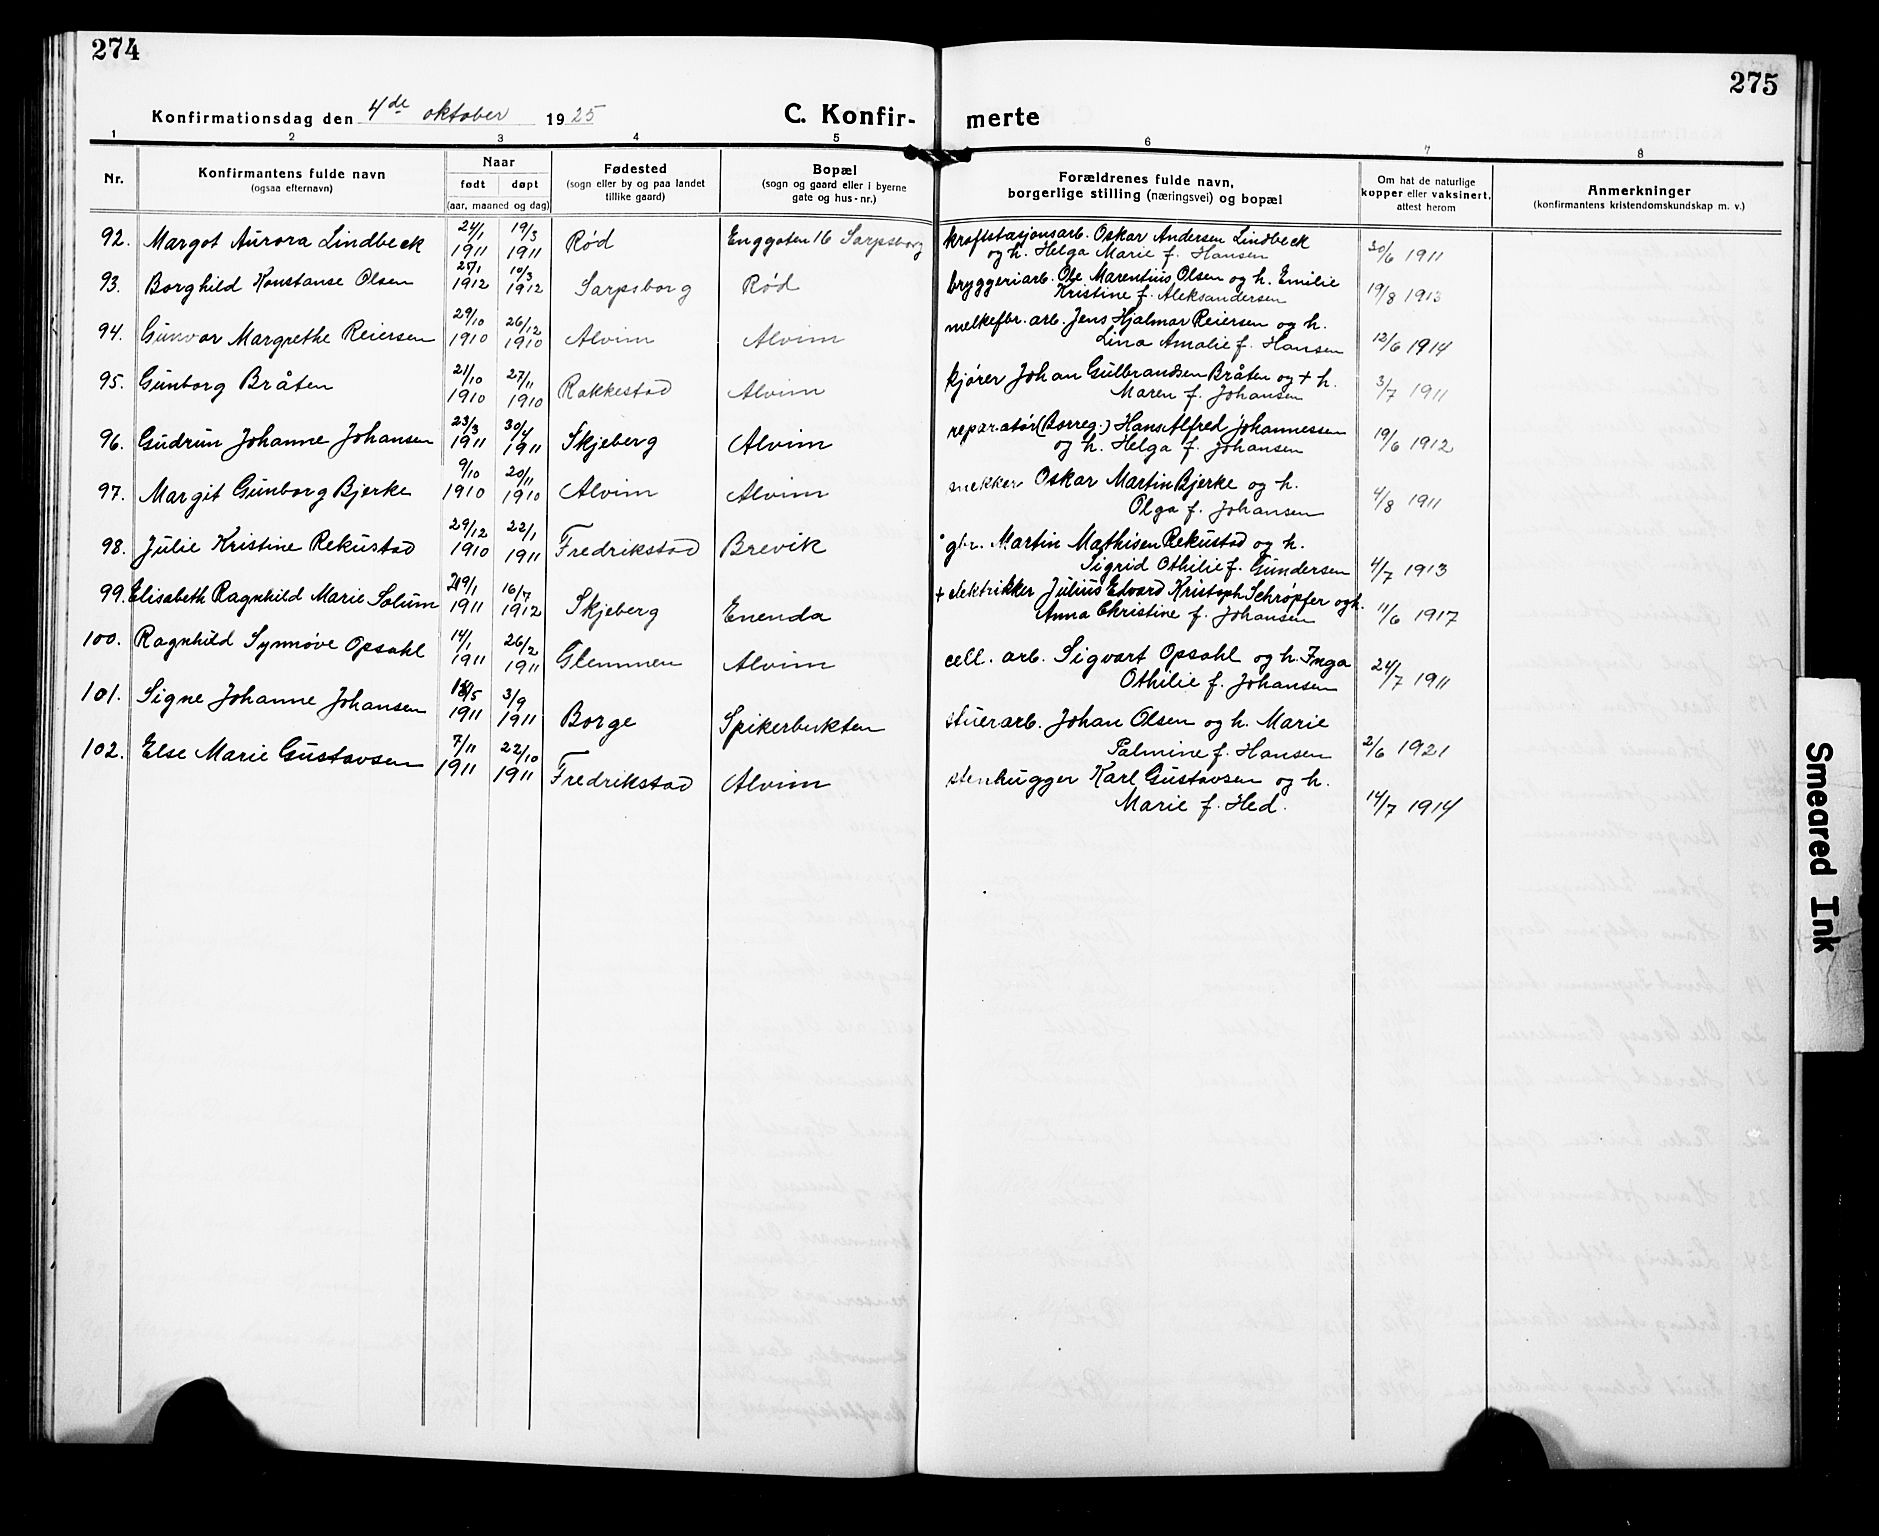 274
275
Konfirmationsdag den 4de oktober 1925
C. Konfir-
merte
1 2 3 4 5 6 7 8
Nr.
Konfirmantens fulde navn
(ogsaa efternavn)
Naar
født døpt
(aar, maaned og dag)
Fødested
(sogn eller by og paa landet
tillike gaard)
Bopæl
(sogn og gaard eller i byerne
gate og hus-nr.)
Forældrenes fulde navn,
borgerlige stilling (næringsvei) og bopæl
Om hat de naturlige
kopper eller vaksinert,
attest herom
Anmerkninger
(konfirmantens kristendomskundskap m. v.)
92. Margot Aurora Lindbeck 24/1 1911 19/3 1911 Rød Enggaten 16 Sarpsborg kraftstasjonsarb. Oskar Andersen Lindbeck
og h. Helga Marie f. Hansen 30/6 1911
93. Borghild Konstanse Olsen 25/1 1912 10/3 1912 Sarpsborg Rød bryggeriarb. Ole Marentius Olsen og h. Emilie
Kristine f. Aleksandersen 19/8 1913
94. Gunvor Margrethe Reiersen 29/10 1910 26/12 1910 Alvim Alvim melkefbr. arb. Jens Hjalmar Reiersen og h.
Lina Amalie f. Hansen 12/6 1914
95. Gunborg Bråten 21/10 1910 27/11 1910 Rakkestad Alvim kjører Johan Gulbrandsen Bråten og + h.
Maren f. Johansen 3/7 1911
96. Gudrun Johanne Johansen 23/3 1911 30/4 1911 Skjeberg Alvim reparatør (Borreg.) Hans Alfred Johannessen
og h. Helga f. Johansen 19/6 1912
97. Margit Gunborg Bjerke 9/10 1910 20/11 1910 Alvim Alvim snekker Oskar Martin Bjerke og h.
Olga f. Johansen 4/8 1911
98. Julie Kristine Rekustad 29/12 1910 22/1 1911 Fredrikstad Brevik gbr. Martin Mathisen Rekustad og h.
Sigrid Othilie f. Gundersen 4/7 1913
99. Elisabeth Ragnhild Marie Solum 1911 16/7 1912 Skjeberg Enenda + elektrikker Julius Edvard Kristoph Schrøpfer og h.
Anna Christine f. Johansen 11/6 1917
100. Ragnhild Synnøve Opsahl 14/1 1911 26/2 1911 Glemmen Alvim cell. arb. Sigvart Opsahl og h. Inga
Othilie f. Johansen 24/7 1911
101. Signe Johanne Johansen 1911 3/9 1911 Borge Spikerbukten stuerarb. Johan Olsen og h. Marie
Palmine f. Hansen 2/6 1921
102. Else Marie Gustavsen 7/11 1911 22/10 1911 Fredrikstad Alvim stenhugger Karl Gustavsen og h.
Marie f. Hed. 14/7 1914
Smeared Ink